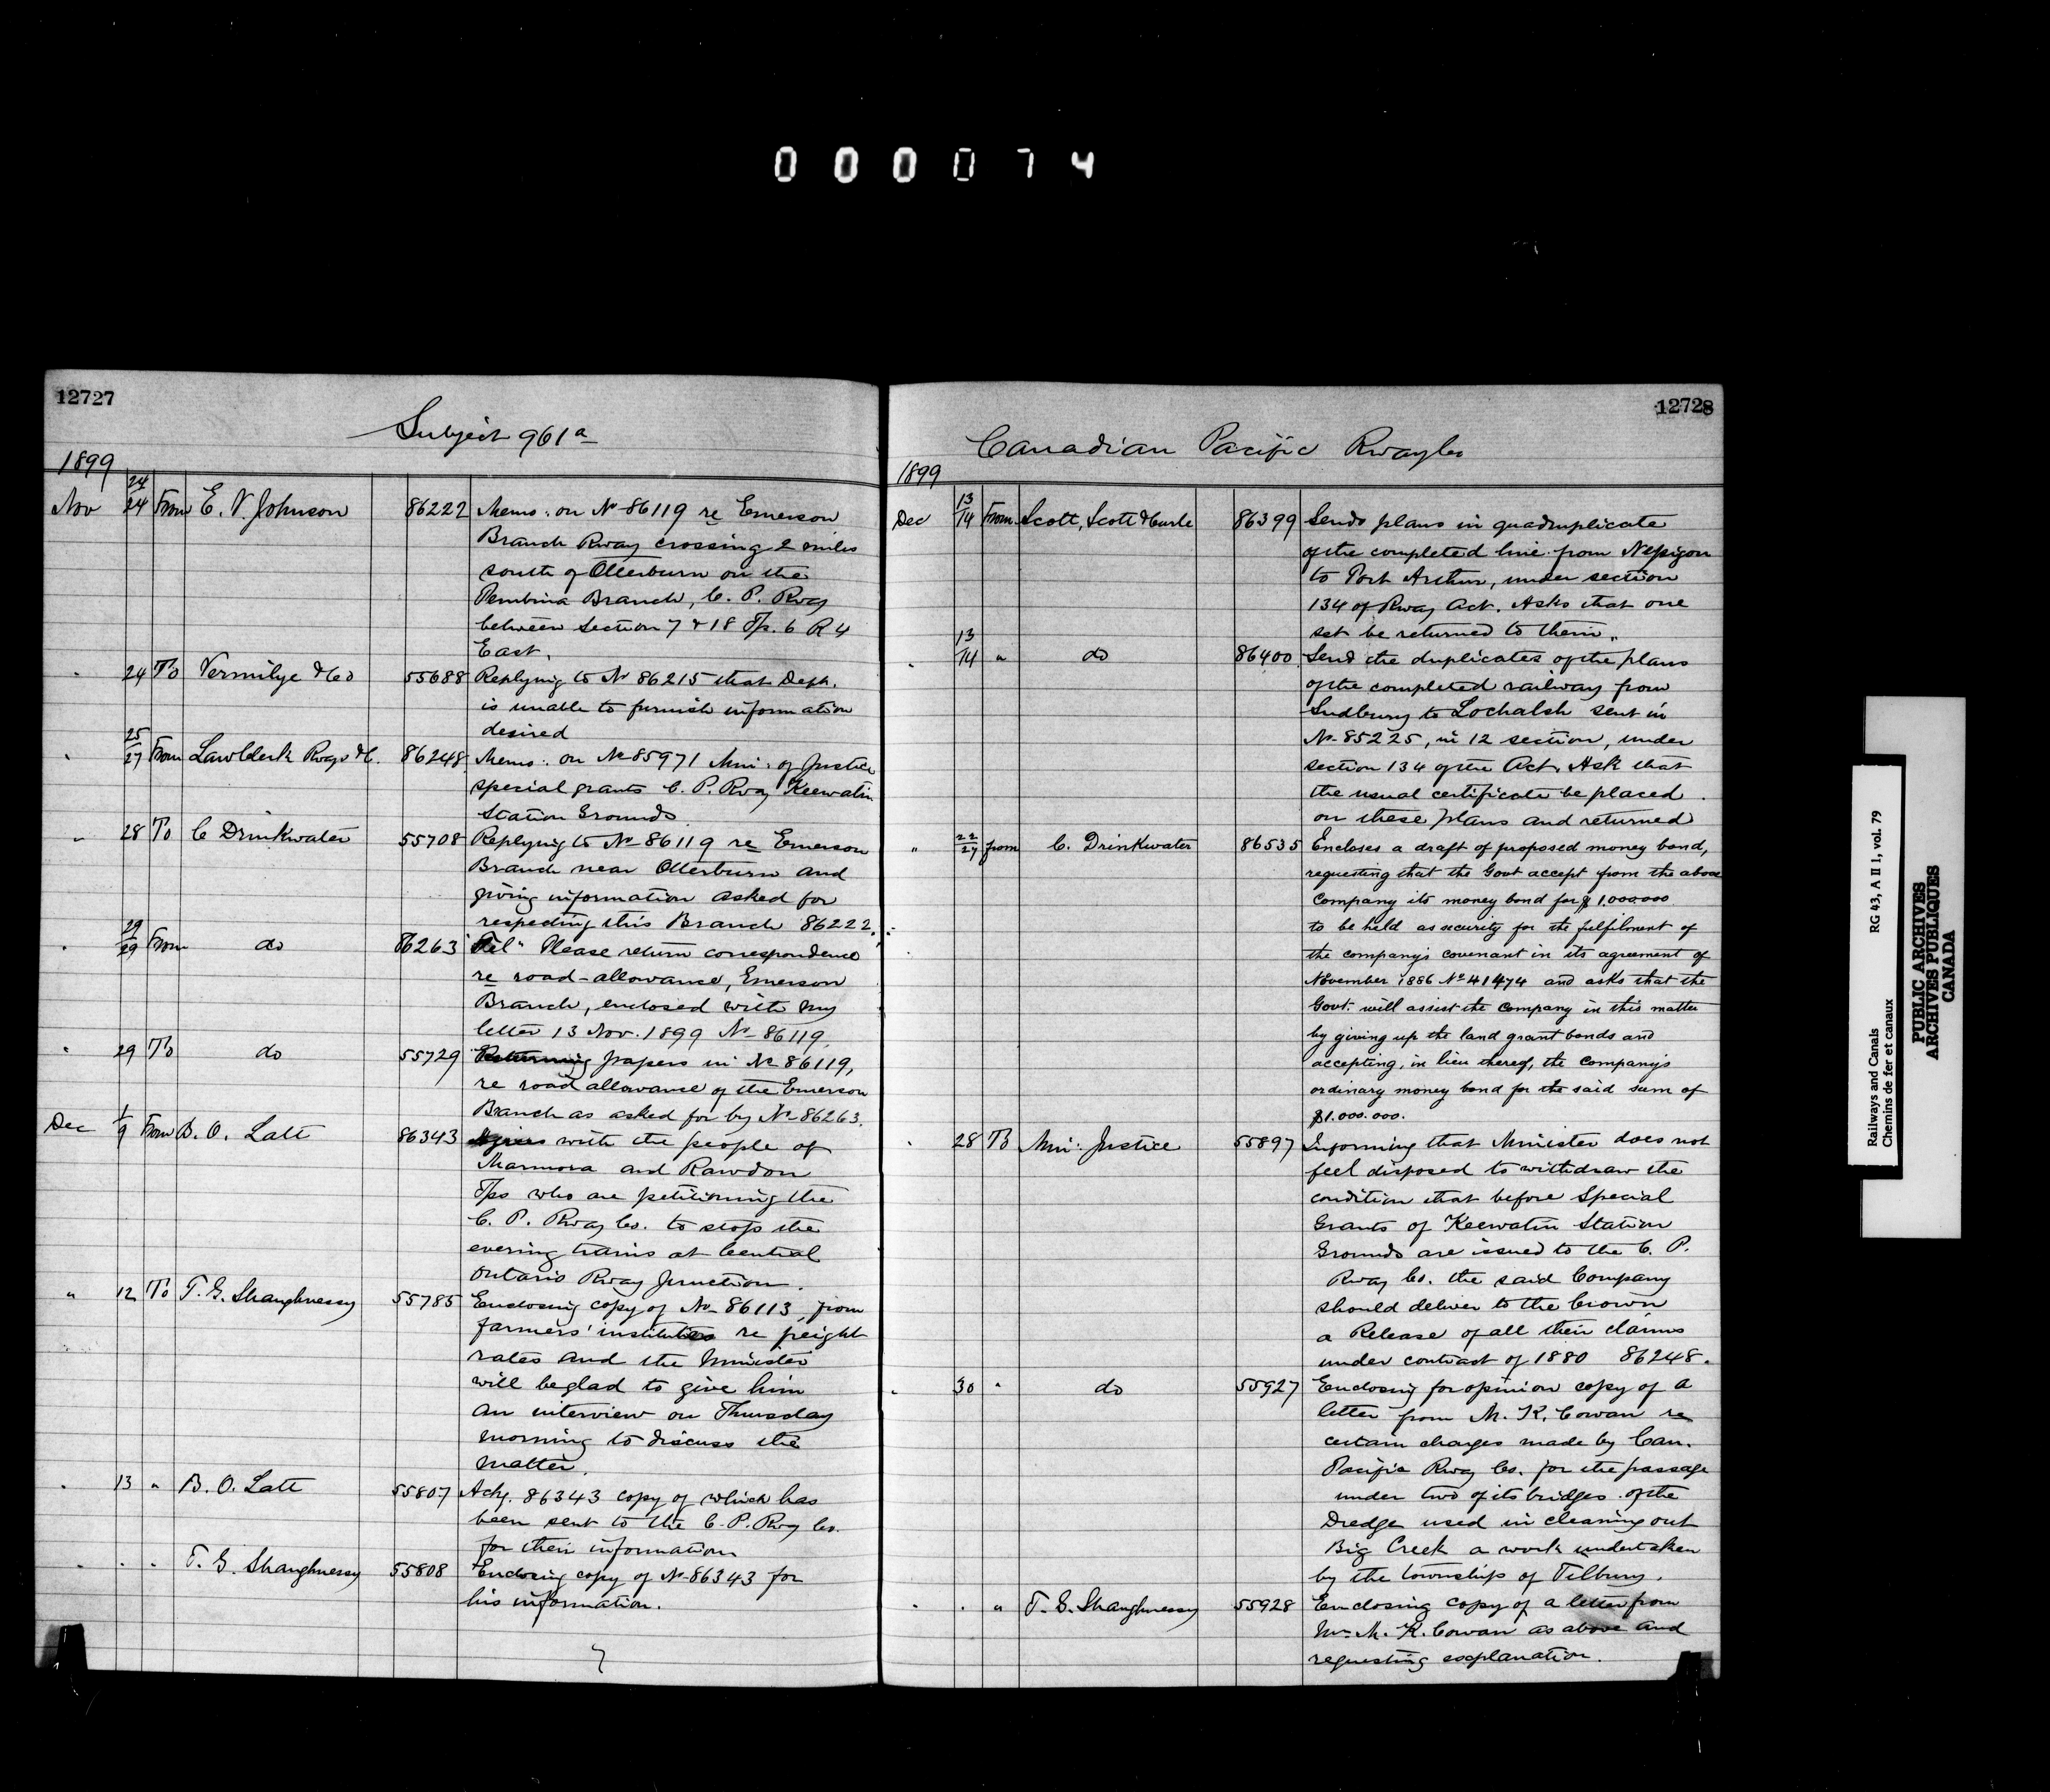 000074
12727
Subject 961a
1899
24
Nov 24 From E. V. Johnson 86222 Memo. on No 86119 re Emerson
Branch Rway crossing 2 miles
south of Otterburn on the
Pembina Branch, C. P. Rway
between Section 7 & 18 Tp. 6 R 4
East.
" 24 To Vermilye & Co 55688 Replying to No 86215 that Dept.
is unable to furnish information
desired
25
" 27 From Law Clerk Rways & C. 86248 Memo. on No 85971 Min. of Justice
special grants C. P. Rway Keewatin
Station Grounds
" 28 To C Drinkwater 55708 Replying to No 86119 re Emerson
Branch near Otterburn and
giving information asked for
respecting this Branch 86222.
29
" 29 From do 86263 "Tel" Please return correspondence
re road-allowance, Emerson
Branch, enclosed with my
letter 13 Nov. 1899 No 86119.
" 29 To do 55729 Returning papers in No 86119,
re road allowance of the Emerson
Branch as asked for by No 86263.
1
Dec 9 From B. O. Lott 86343 Agrees with the people of
Marmora and Rawdon
Tps who are petitioning the
C. P. Rway Co. to stop the
evening trains at Central
Ontario Rway Junction.
" 12 To T. G. Shaughnessy 55785 Enclosing copy of No 86113, from
farmers' institutes re freight
rates and the Minister
will be glad to give him
an interview on Thursday
morning to discuss the
matter.
" 13 " B. O. Lott 55807 Ackg. 86343 copy of which has
been sent to the C. P. Rway Co.
for their information
" " " T. G. Shaughnessy 55808 Enclosing copy of No 86343 for
his information.
12728
Canadian Pacific Rway Co
1899
13
Dec 14 From Scott, Scott & Curle 86399 Sends plans in quadruplicate
of the completed line from Nepigon
to Port Arthur, under section
134 of Rway Act. Asks that one
set be returned to them.
13
" 14 " do 86400 Send the duplicates of the plans
of the completed railway from
Sudbury to Lochalsh sent in
No 85225, in 12 section, under
section 134 of the Act. Ask that
the usual certificate be placed
on these plans and returned
22
" 27 from C. Drinkwater 86535 Encloses a draft of proposed money bond,
requesting that the Govt accept from the above
Company its money bond for $1.000.000
to be held as security for the fulfilment of
the company's covenant in its agreement of
November 1886 No 41474 and asks that the
Govt. will assist the Company in this matter
by giving up the land grant bonds and
accepting, in lieu thereof, the Company's
ordinary money bond for the said sum of
$1.000.000.
" 28 To Min. Justice 55897 Informing that Minister does not
feel disposed to withdraw the
condition that before Special
Grants of Keewatin Station
Grounds are issued to the C. P.
Rway Co. the said Company
should deliver to the Crown
a Release of all their claims
under contract of 1880 86248.
" 30 " do 55927 Enclosing for opinion copy of a
letter from M. K. Cowan re
certain charges made by Can.
Pacific Rway Co. for the passage
under two of its bridges of the
Dredge used in cleaning out
Big Creek a work undertaken
by the township of Tilbury.
" " " T. G. Shaughnessy 55928 Enclosing copy of a letter from
Mr. M. K. Cowan as above and
requesting explanation.
Railways and Canals RG 43, A II 1, vol. 79
Chemins de fer et canaux
PUBLIC ARCHIVES
ARCHIVES PUBLIQUES
CANADA